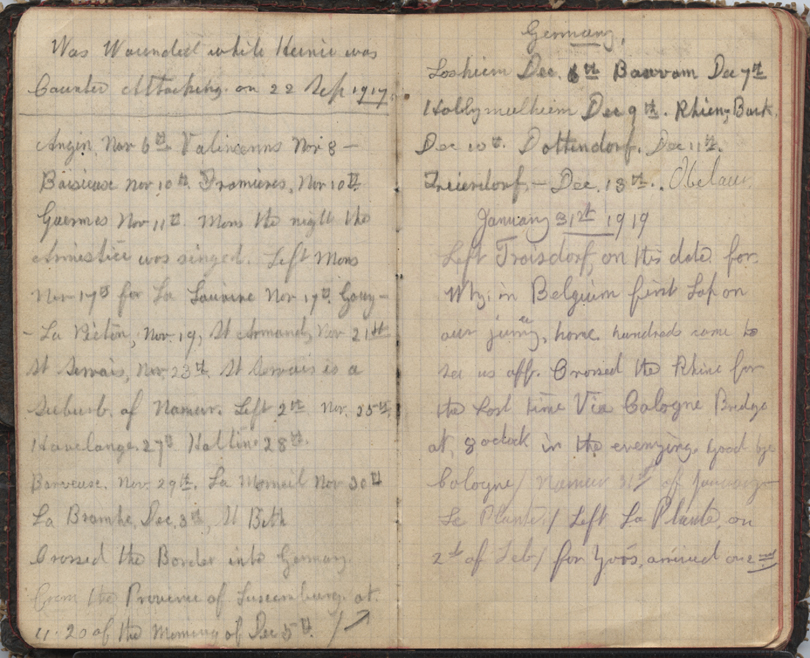 Was Wounded while Heinie was
Counter Attacking. on 22 Sep 1917.
Anzin, Nov 6th Valincenns Nov 8 –
Baisieuse Nov 10th. Framieres, Nov 10th
Nov 11th. Mons the night the
Armistice was singed. Left Mons
Nov 17th for La Louvire Nov 17th. Gouy –
– La Piéton, Nov. 19, St Armand, Nov 21st
St Servais, Nov. 23rd. St Servais is a
Suburb. of Namur. Left Nov. 25th,
Havelange. 27th Haltine 28th.
Barveuse. Nov. 29th. La Nov 30th
La Dec. 3rd, St Beth
Crossed the Border into Germany.
From the Province of Luxemburg. at.
11.20 of the Morning of Dec 5th.
Germany,
Loshiem Dec. 6th Dec 7th
Dec 9th. Rhieng Bach.
Dec 10th. Dottendorf. Dec 11th.
Dec. 13th.
January 31st 1919
Left Troisdorf, on this date for
in Belgium first Lap on
our jurny, home. hundred come to
see us off. Crossed the Rhine for
the Last time Via Cologne Bridge
at, 8 oclock in the evenging. Good bye
Cologne / Namur 31st of January
Le Plante / Left La Plante, on
2nd of Feb / for arrived on 2nd